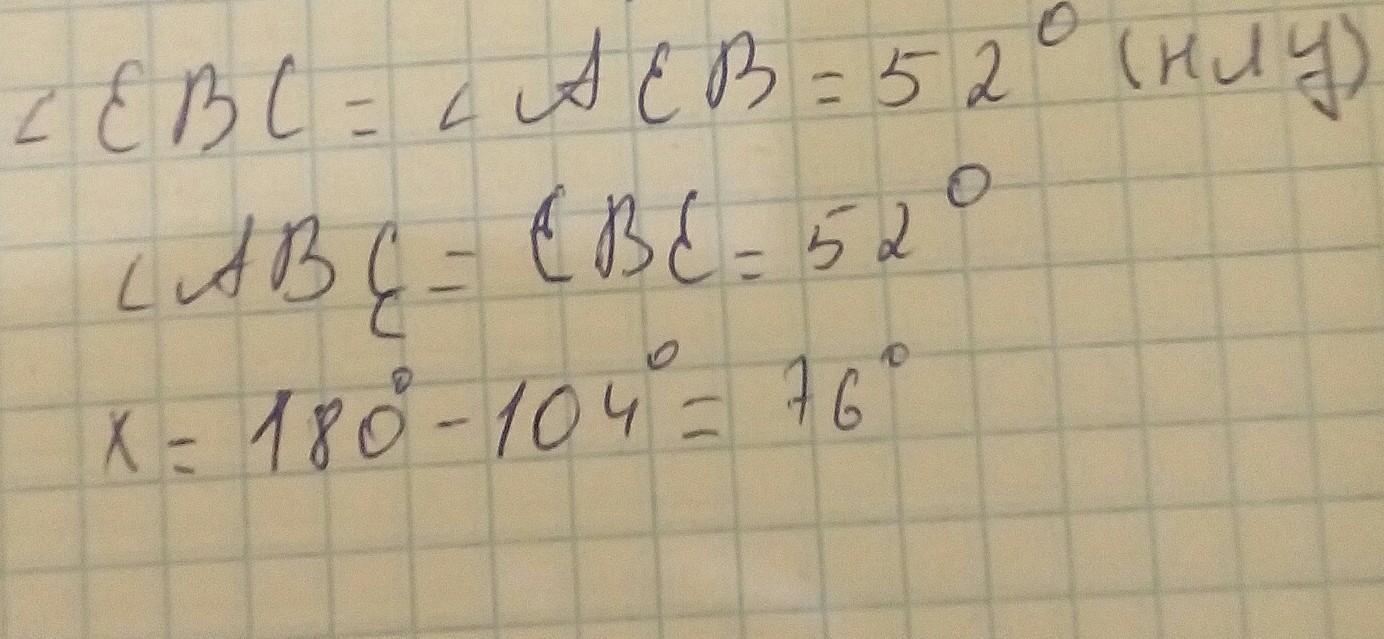 ∠EBC = ∠AEB = 52° (НЛУ)
∠ABE = EBC = 52°
x = 180° - 104° = 76°